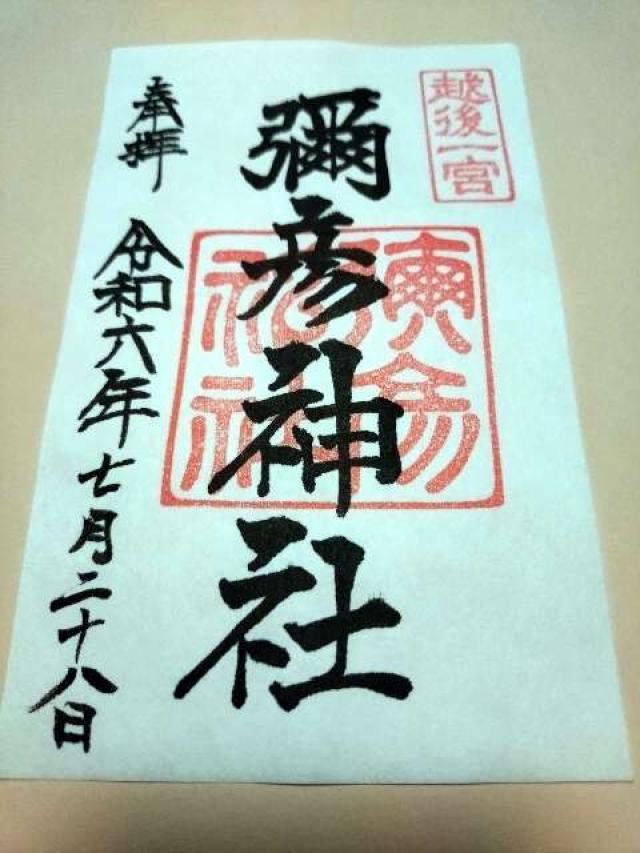 越後一宮
彌彦神社
奉拝
令和六年七月二十八日